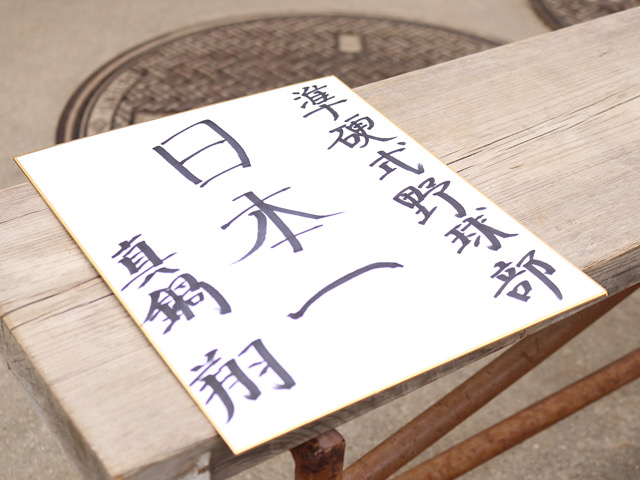 準硬式野球部
日本一
真鍋翔